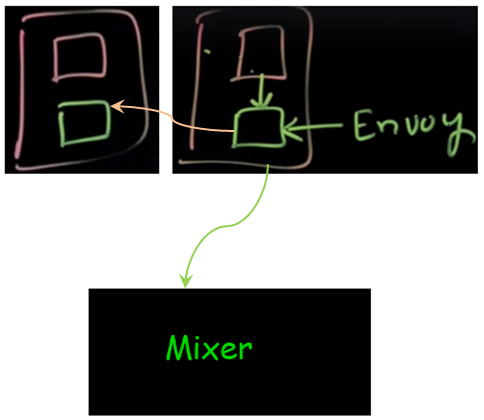 Envoy
Mixer